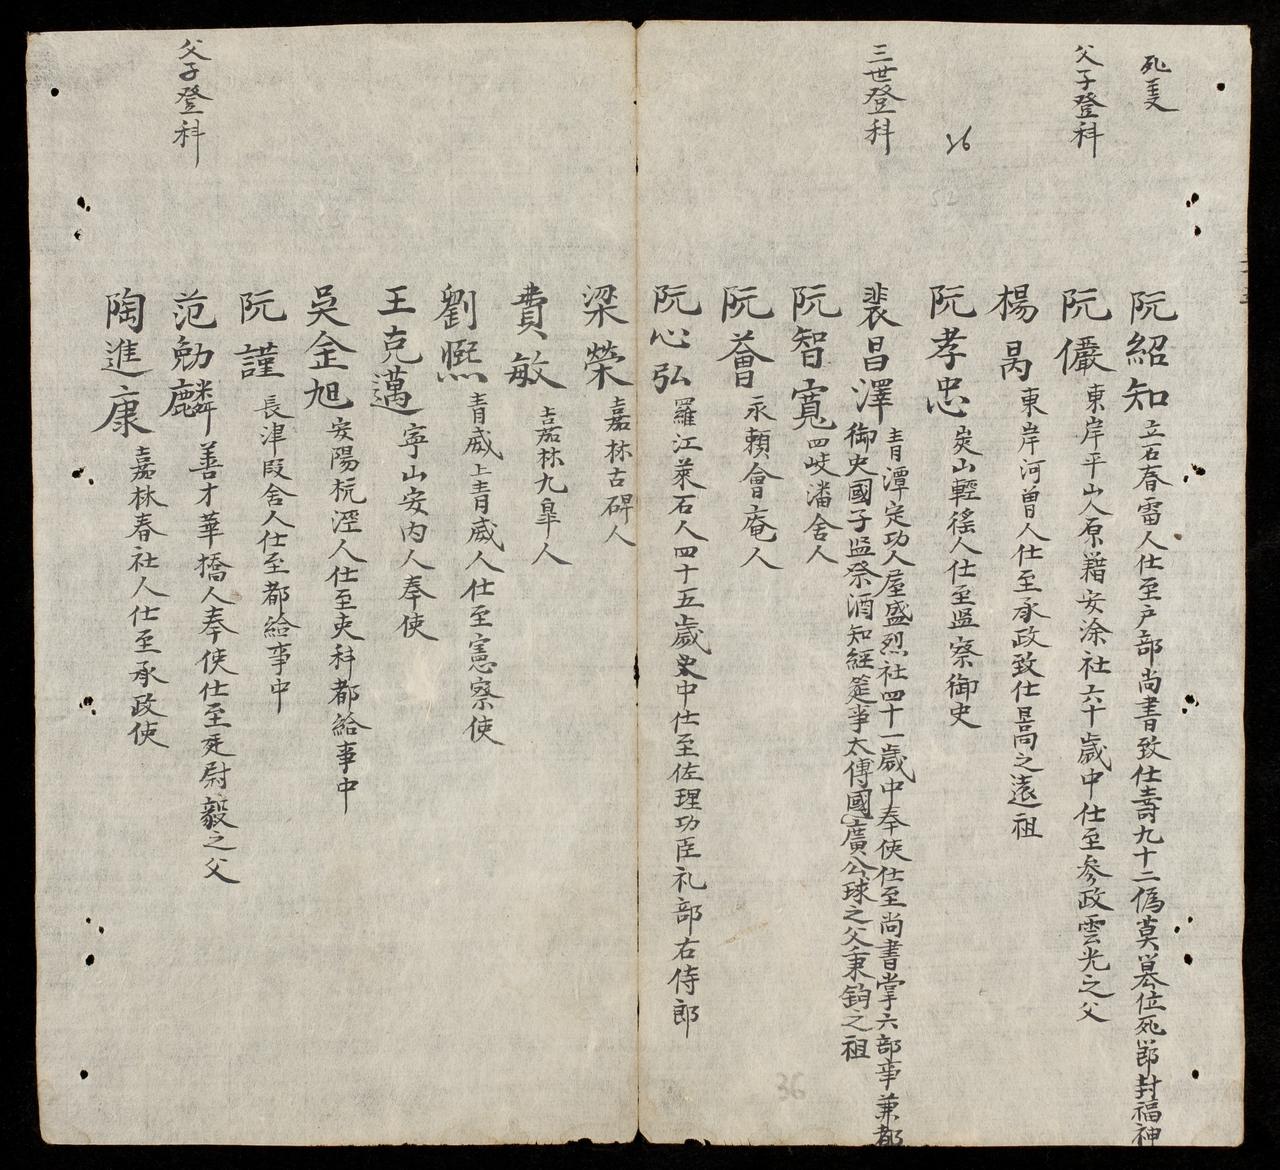 死
阮紹知立石春雷人仕至户部尚書致仕壽九十二偽莫篡位死節封福神
父子登科
阮儼東岸平山人原籍安涂社六十歲中仕至參政雲光之父
楊暠東岸河曾人仕至承政致仕暠之遠祖
36
阮孝忠炭山輕徭人仕至監察御史
三世登科
裴昌澤青潭定功人屋盛烈社四十一歲中奉使仕至尚書掌六部事兼都
御史國子監祭酒知經筵事太傅國廣公球之父秉鈞之祖
阮智寬四岐潘舍人
阮薈永賴會庵人
阮心弘羅江萊石人四十五歲中仕至佐理功臣礼部右侍郎
梁榮嘉林古碑人
費敏嘉林九皐人
劉熈青威上青威人仕至憲察使
王克邁寧山安内人奉使
吳金旭安陽杬涇人仕至吏科都給事中
阮謹長津段舍人仕至都給事中
父子登科
范勉麟善才華橋人奉使仕至死尉毅之父
陶進康嘉林春社人仕至承政使
36